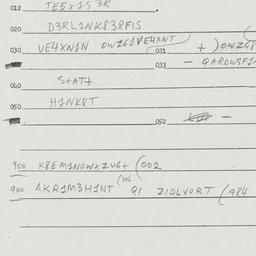 012 TE5x153K
020 D3RL1NK838FIS
030 VE4XN1N OWZG1VE4XNT
031 + )OWZG8
033 - QAROWSF1
040 S+AT+
050 H1NK8T
052
900 K8EM1NOWXZUG+ (002
900 AKR1M3H1NT Q1 Z1DLVORT (984